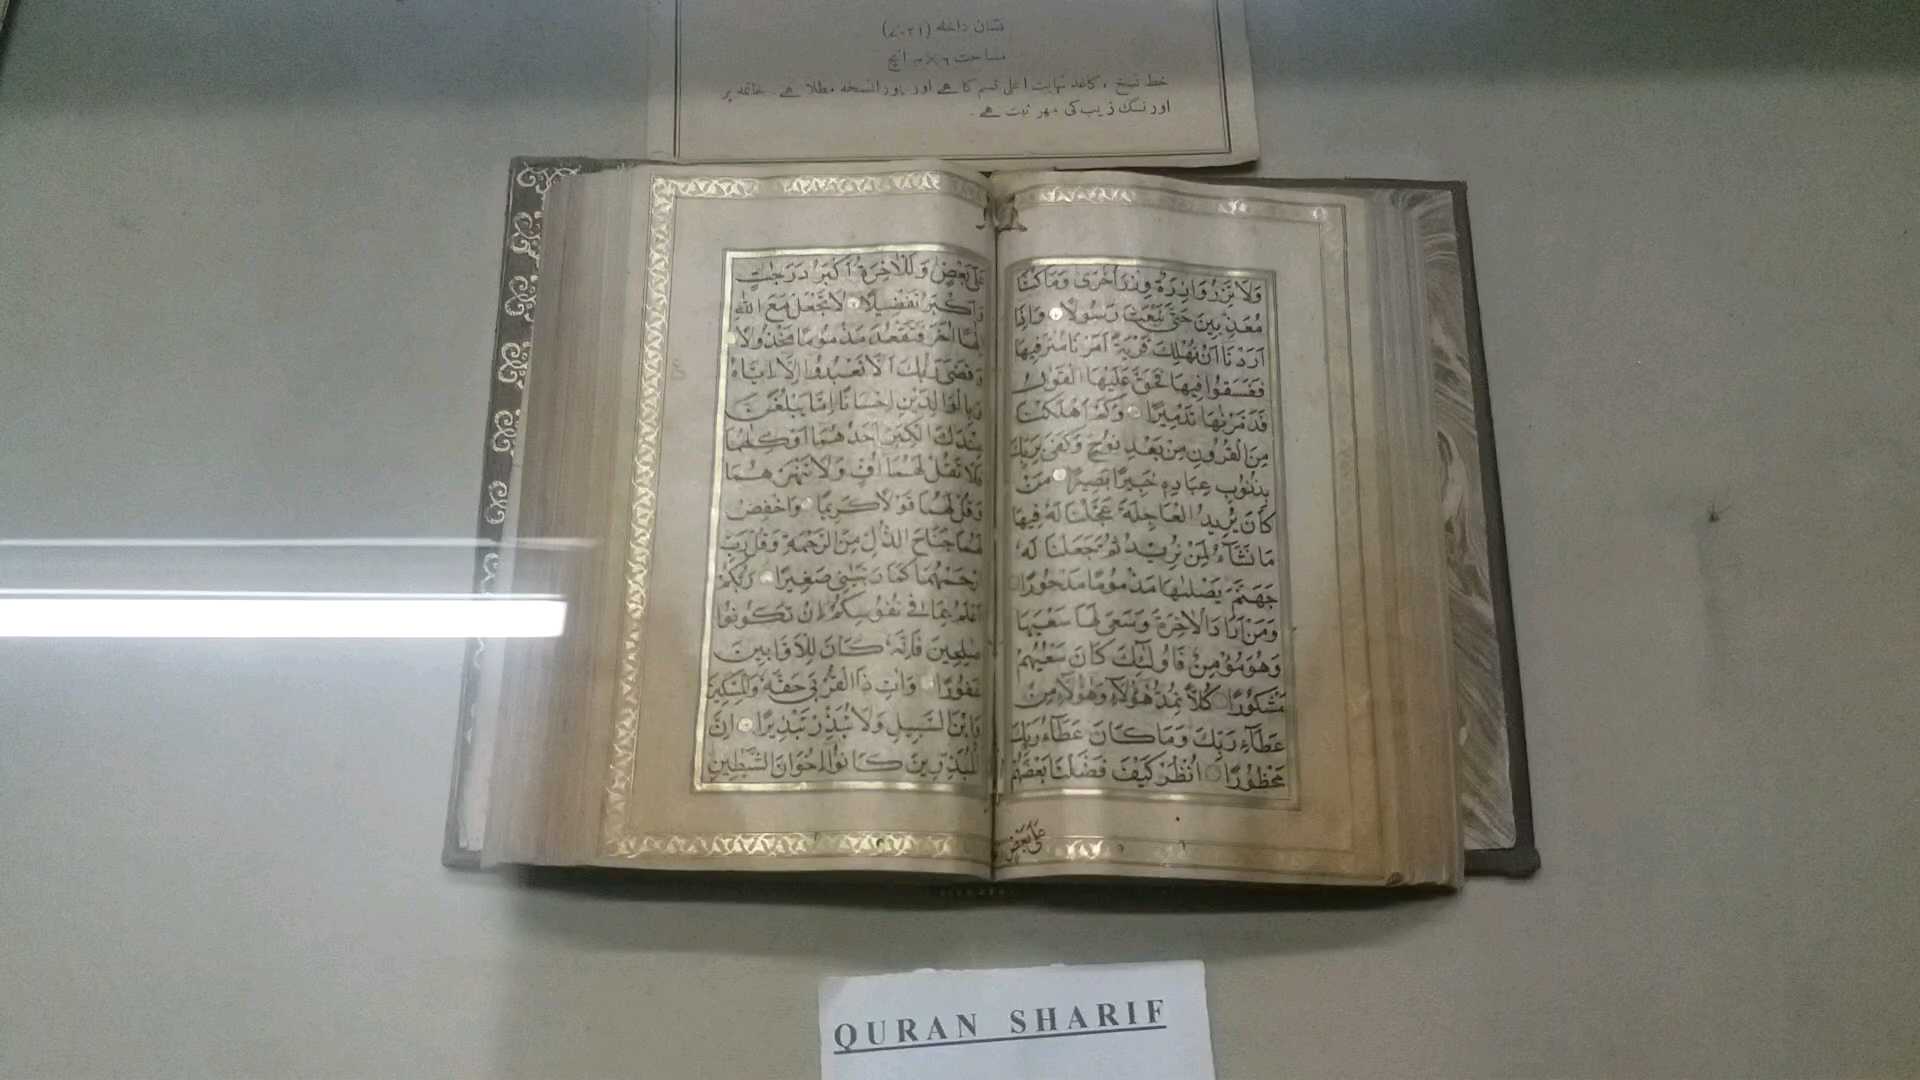 نشان داخلہ (۷۰۲۱)
مساحت ۶×۳ انچ
خط نسخ ، کاغذ نہایت اعلی قسم کا ہے اور پورا نسخہ مطلا ہے۔ خاتمہ پر
اورنگ زیب کی مہر ثبت ہے۔
وَلَا تَزِرُ وَازِرَةٌ وِزْرَ أُخْرَى وَمَا كُنَّا
مُعَذِّبِينَ حَتَّى نَبْعَثَ رَسُولًا وَإِذَا
أَرَدْنَا أَنْ نُهْلِكَ قَرْيَةً أَمَرْنَا مُتْرَفِيهَا
فَفَسَقُوا فِيهَا فَحَقَّ عَلَيْهَا الْقَوْلُ
فَدَمَّرْنٰهَا تَدْمِيرًا وَكَمْ أَهْلَكْنَا
مِنَ الْقُرُونِ مِنْ بَعْدِ نُوحٍ وَكَفَى بِرَبِّكَ
بِذُنُوبِ عِبَادِهِ خَبِيرًا بَصِيرًا مَنْ
كَانَ يُرِيدُ الْعَاجِلَةَ عَجَّلْنَا لَهُ فِيهَا
مَا نَشَآءُ لِمَنْ نُرِيدُ ثُمَّ جَعَلْنَا لَهُ
جَهَنَّمَ يَصْلٰىهَا مَذْمُومًا مَدْحُورًا
وَمَنْ أَرَادَ الْآخِرَةَ وَسَعَى لَهَا سَعْيَهَا
وَهُوَ مُؤْمِنٌ فَأُولٰئِكَ كَانَ سَعْيُهُمْ
مَشْكُورًا كُلًّا نُمِدُّ هٰؤُلَآءِ وَهٰؤُلَآءِ مِنْ
عَطَآءِ رَبِّكَ وَمَا كَانَ عَطَآءُ رَبِّكَ
مَحْظُورًا انْظُرْ كَيْفَ فَضَّلْنَا بَعْضَهُمْ
عَلَى بَعْضٍ
عَلَى بَعْضٍ وَلَلْآخِرَةُ أَكْبَرُ دَرَجٰتٍ
وَأَكْبَرُ تَفْضِيلًا لَا تَجْعَلْ مَعَ اللهِ
إِلٰهًا آخَرَ فَتَقْعُدَ مَذْمُومًا مَخْذُولًا
وَقَضَى رَبُّكَ أَلَّا تَعْبُدُوا إِلَّا إِيَّاهُ
وَبِالْوَالِدَيْنِ إِحْسَانًا إِمَّا يَبْلُغَنَّ
عِنْدَكَ الْكِبَرَ أَحَدُهُمَا أَوْ كِلٰهُمَا
فَلَا تَقُلْ لَهُمَا أُفٍّ وَلَا تَنْهَرْهُمَا
وَقُلْ لَهُمَا قَوْلًا كَرِيمًا وَاخْفِضْ
لَهُمَا جَنَاحَ الذُّلِّ مِنَ الرَّحْمَةِ وَقُلْ رَبِّ
ارْحَمْهُمَا كَمَا رَبَّيٰنِي صَغِيرًا رَبُّكُمْ
أَعْلَمُ بِمَا فِي نُفُوسِكُمْ إِنْ تَكُونُوا
صٰلِحِينَ فَإِنَّهُ كَانَ لِلْأَوَّابِينَ
غَفُورًا وَآتِ ذَا الْقُرْبَى حَقَّهُ وَالْمِسْكِينَ
وَابْنَ السَّبِيلِ وَلَا تُبَذِّرْ تَبْذِيرًا إِنَّ
الْمُبَذِّرِينَ كَانُوا إِخْوَانَ الشَّيٰطِينِ
QURAN SHARIF